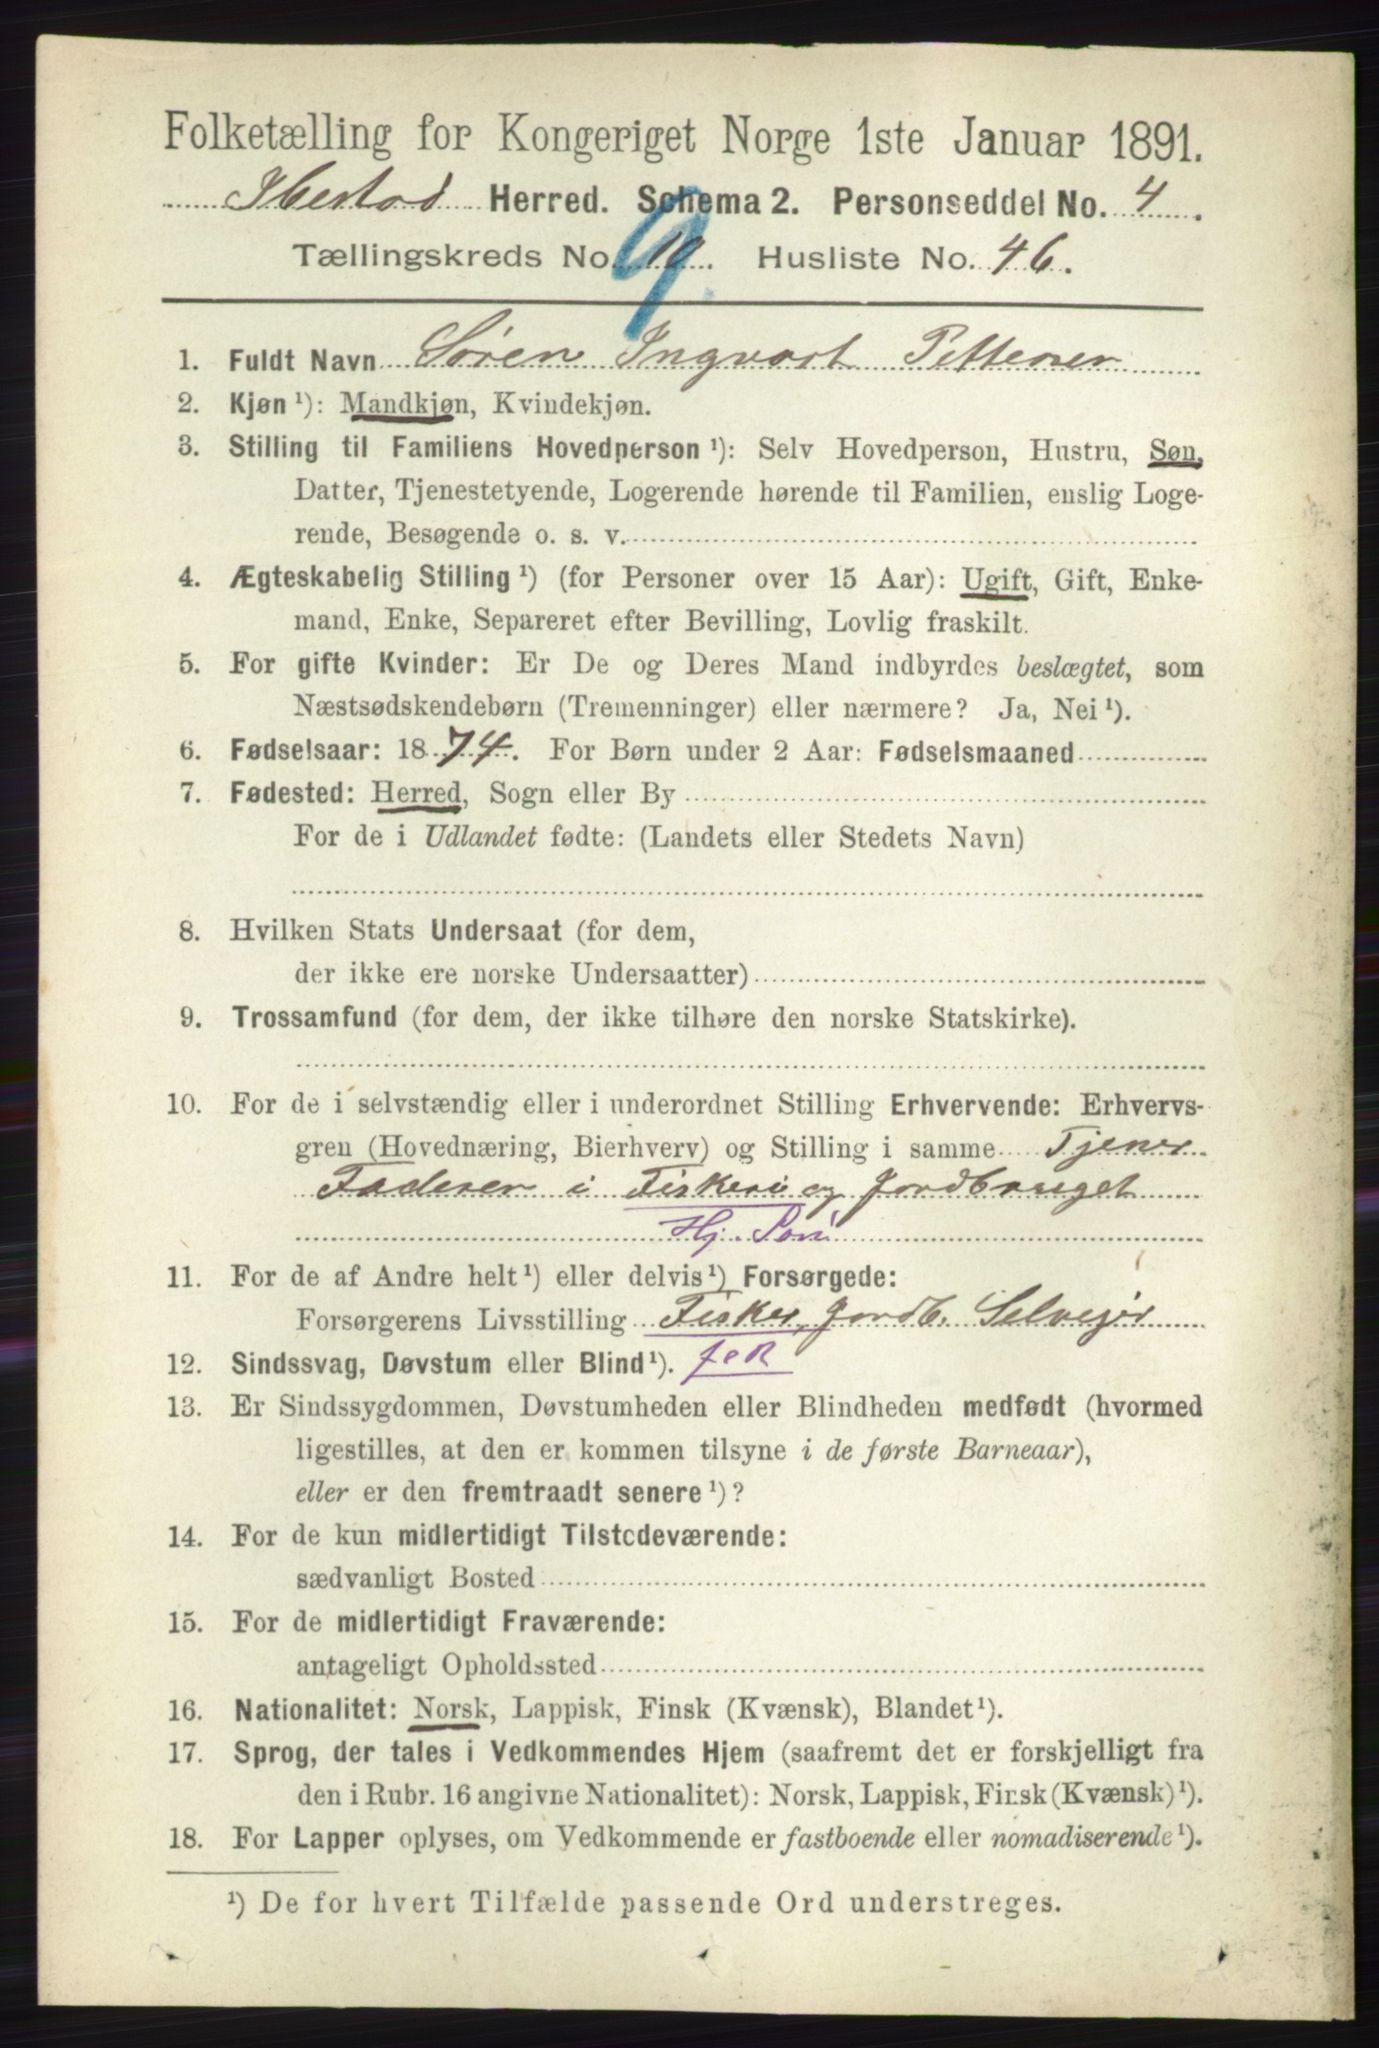 Folketælling for Kongeriget Norge 1ste Januar 1891.
Ibestad Herred. Schema 2. Personseddel No. 4.
Tællingskreds No. 10. Husliste No. 46.
9.
1. Fuldt Navn Søren Ingvart Pettersen
2. Kjøn ¹): Mandkjøn, Kvindekjøn.
3. Stilling til Familiens Hovedperson ¹): Selv Hovedperson, Hustru, Søn,
Datter, Tjenestetyende, Logerende hørende til Familien, enslig Loge-
rende, Besøgende o. s. v.
4. Ægteskabelig Stilling ¹) (for Personer over 15 Aar): Ugift, Gift, Enke-
mand, Enke, Separeret efter Bevilling, Lovlig fraskilt.
5. For gifte Kvinder: Er De og Deres Mand indbyrdes beslægtet, som
Næstsødskendebørn (Tremenninger) eller nærmere? Ja, Nei ¹).
6. Fødselsaar: 1874. For Børn under 2 Aar: Fødselsmaaned
7. Fødested: Herred, Sogn eller By
For de i Udlandet fødte: (Landets eller Stedets Navn)
8. Hvilken Stats Undersaat (for dem,
der ikke ere norske Undersaatter)
9. Trossamfund (for dem, der ikke tilhøre den norske Statskirke).
10. For de i selvstændig eller i underordnet Stilling Erhvervende: Erhvervs-
gren (Hovednæring, Bierhverv) og Stilling i samme Tjener
Faderen i Fiskeri og Jordbruget
Hj. Søn
11. For de af Andre helt ¹) eller delvis ¹) Forsørgede:
Forsørgerens Livsstilling Fisker, Jordb. Selvejer
12. Sindssvag, Døvstum eller Blind ¹).
13. Er Sindssygdommen, Døvstumheden eller Blindheden medfødt (hvormed
ligestilles, at den er kommen tilsyne i de første Barneaar),
eller er den fremtraadt senere ¹)?
14. For de kun midlertidigt Tilstedeværende:
sædvanligt Bosted
15. For de midlertidigt Fraværende:
antageligt Opholdssted
16. Nationalitet: Norsk, Lappisk, Finsk (Kvænsk), Blandet ¹).
17. Sprog, der tales i Vedkommendes Hjem (saafremt det er forskjelligt fra
den i Rubr. 16 angivne Nationalitet): Norsk, Lappisk, Finsk (Kvænsk) ¹).
18. For Lapper oplyses, om Vedkommende er fastboende eller nomadiserende ¹).
¹) De for hvert Tilfælde passende Ord understreges.